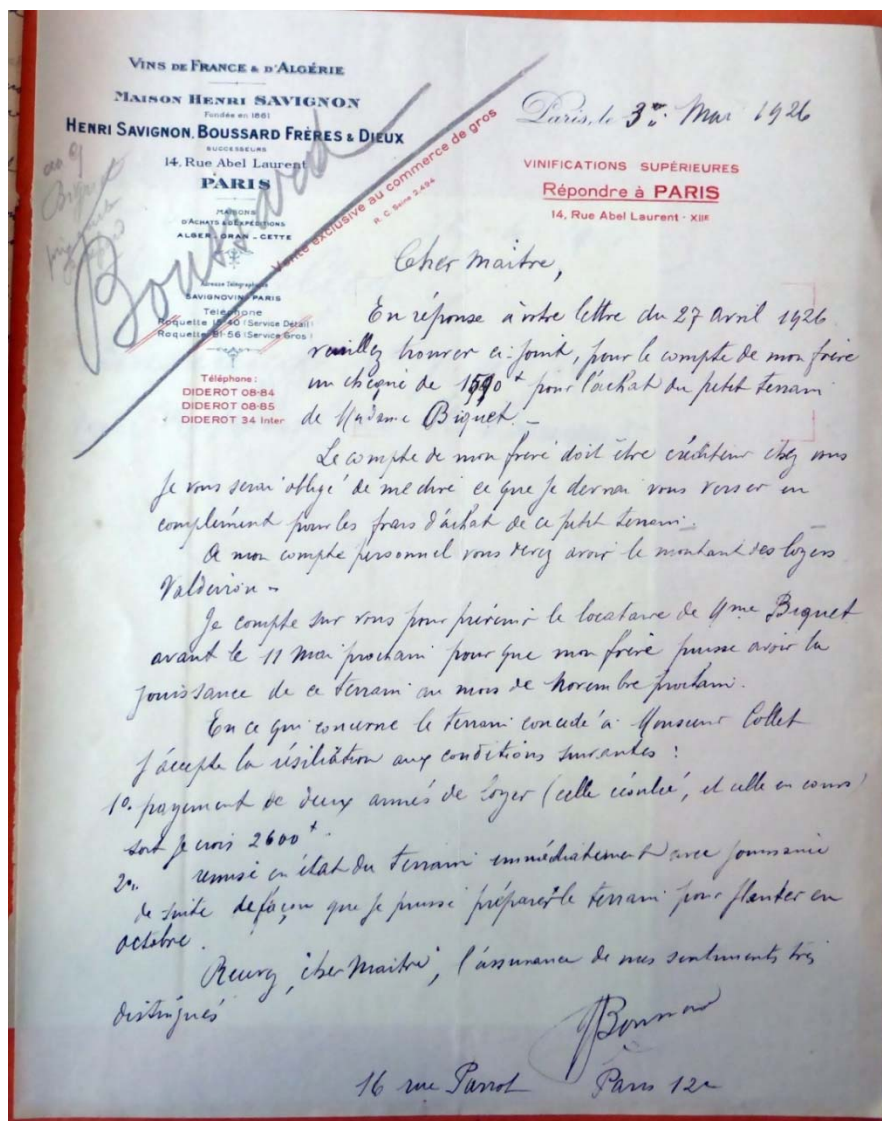 VINS DE FRANCE & D'ALGÉRIE
MAISON HENRI SAVIGNON
Fondée en 1861
HENRI SAVIGNON, BOUSSARD FRÈRES & DIEUX
SUCCESSEURS
14, Rue Abel Laurent
PARIS
MAISONS
D'ACHATS & D'EXPÉDITIONS
ALGER - ORAN - CETTE
Adresse Télégraphique
SAVIGNOVIN - PARIS
Téléphone
Roquette 15-40 (Service Détail)
Roquette 81-56 (Service Gros)
Téléphone :
DIDEROT 08-84
DIDEROT 08-85
DIDEROT 34 Inter
Boussard
Vente exclusive au commerce de gros
R. C. Seine 2.494
Paris, le 3 Mai 1926
VINIFICATIONS SUPÉRIEURES
Répondre à PARIS
14, Rue Abel Laurent - XIIE
Cher Maitre,
En réponse à votre lettre du 27 Avril 1926
veuillez trouver ci-joint, pour le compte de mon frère
un chèque de pour l'achat du petit terrain
de Madame Biquet. -
Le compte de mon frère doit être créditeur chez vous
Je vous serai obligé de me dire ce que je devrai vous verser en
complément pour les frais d'achat de ce petit terrain.
A mon compte personnel vous devez avoir le montant des loyers
Je compte sur vous pour prévenir le locataire de Mme Biquet
avant le 11 Mai prochain pour que mon frère puisse avoir la
jouissance de ce terrain au mois de Novembre prochain.
En ce qui concerne le terrain concédé à Monsieur Collet
J'accepte la résiliation aux conditions suivantes :
1o. payement de deux années de loyer (celle écoulée, et celle en cours)
soit je crois 2600 f.
2o. remise en état du terrain immédiatement avec jouissance
de suite de façon que je puisse préparer le terrain pour planter en
octobre.
Recevez, cher Maitre, l'assurance de mes sentiments très
distingués
Boussard
16 rue Parrot Paris 12e